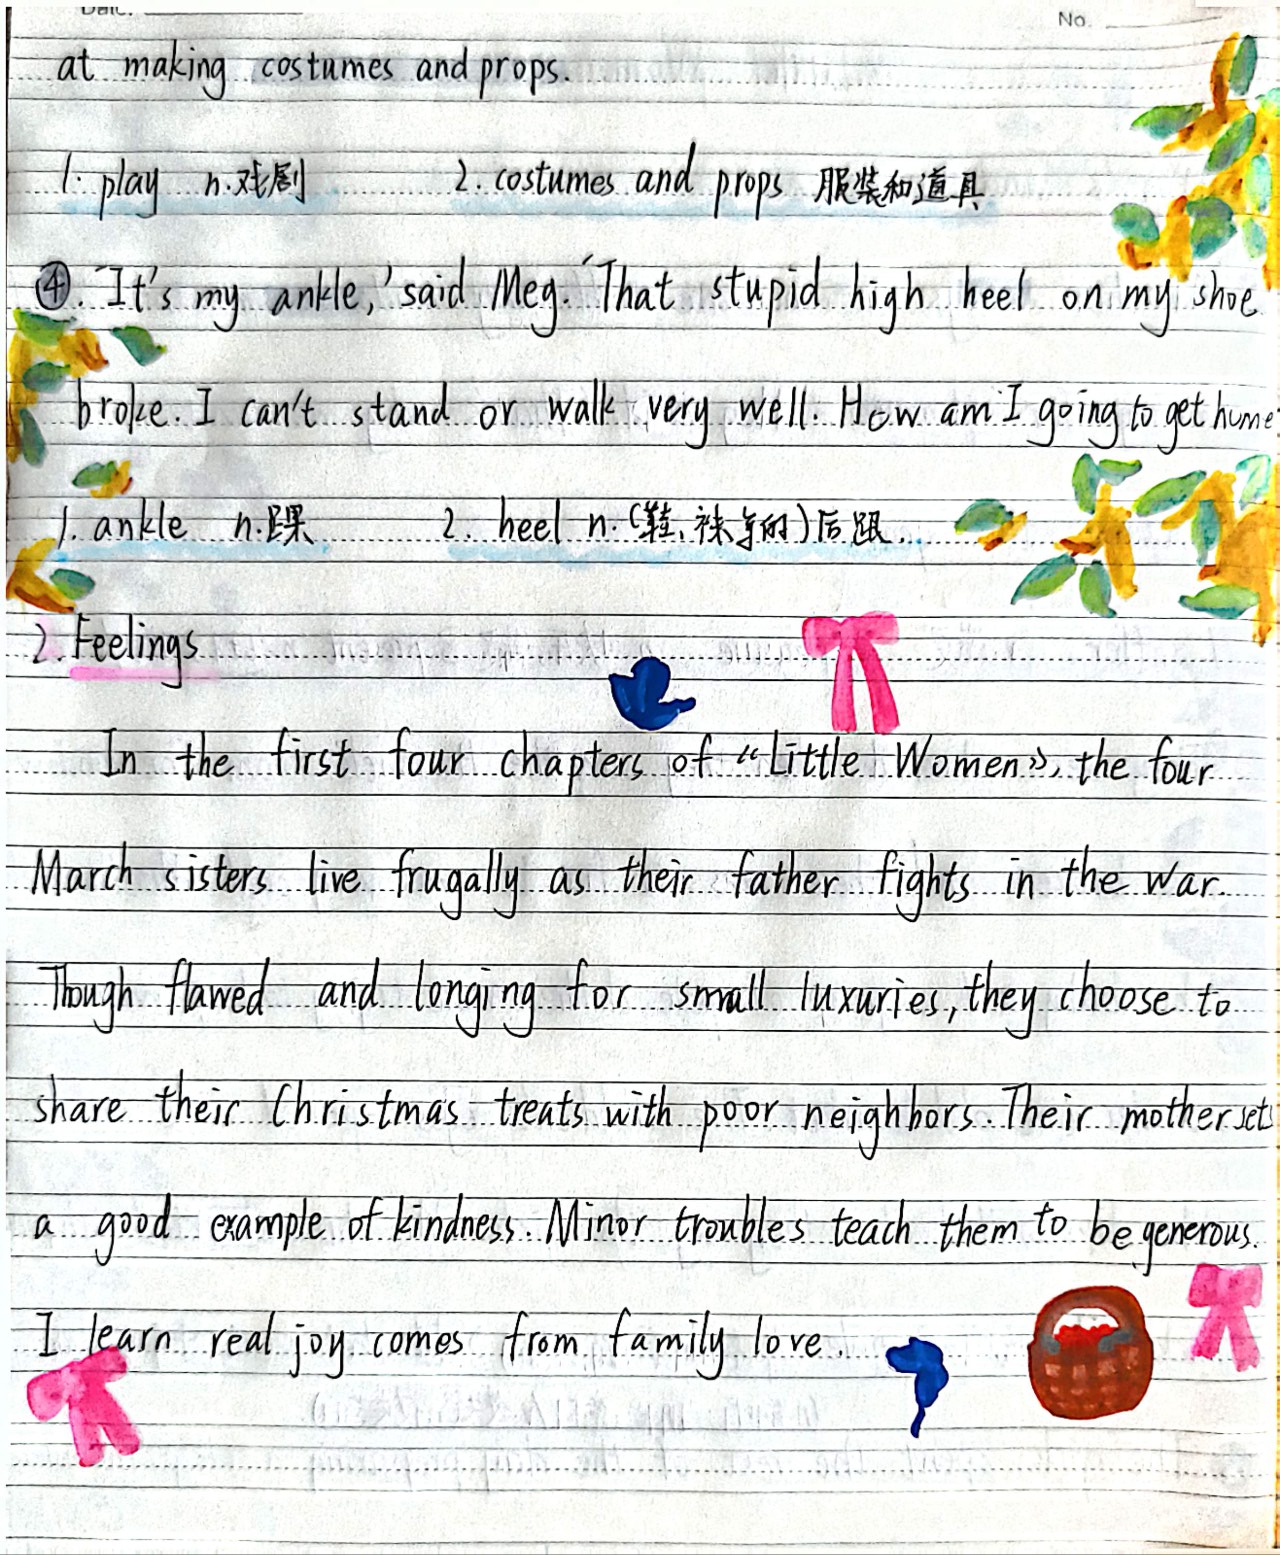 No.
at making costumes and props.
1. play n.戏剧 2. costumes and props 服装和道具
④. 'It's my ankle,' said Meg. 'That stupid high heel on my shoe
broke. I can't stand or walk very well. How am I going to get home
1. ankle n.踝 2. heel n.(鞋、袜等的)后跟.
2. Feelings
In the first four chapters of 《Little Women》, the four
March sisters live frugally as their father fights in the war.
Though flawed and longing for small luxuries, they choose to
share their Christmas treats with poor neighbors. Their mother sets
a good example of kindness. Minor troubles teach them to be generous.
I learn real joy comes from family love.